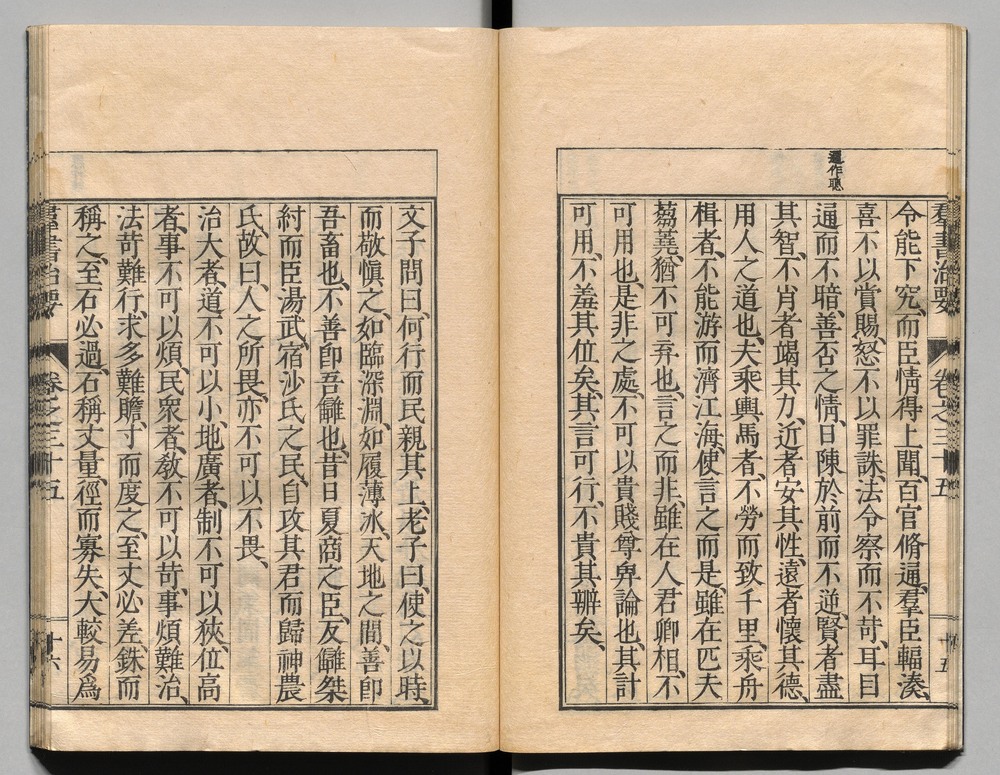 群書治要 卷之三十五 十五
通作聰
令能下究、而臣情得上聞、百官脩通、羣臣輻湊、
喜不以賞賜、怒不以罪誅、法令察而不苛、耳目
通而不暗、善否之情、日陳於前而不逆、賢者盡
其智、不肖者竭其力、近者安其性、遠者懷其德、
用人之道也、夫乘輿馬者、不勞而致千里、乘舟
楫者、不能游而濟江海、使言之而是、雖在匹夫
芻蕘、猶不可弃也、言之而非、雖在人君卿相、不
可用也、是非之處、不可以貴賤尊卑論也、其計
可用、不羞其位矣、其言可行、不貴其辯矣、
文子問曰、何行而民親其上、老子曰、使之以時、
而敬愼之、如臨深淵、如履薄冰、天地之間、善卽
吾畜也、不善卽吾讎也、昔日夏商之臣、反讎桀
紂而臣湯武、宿沙氏之民、自攻其君而歸神農
氏、故曰人之所畏、亦不可以不畏、
治大者、道不可以小、地廣者、制不可以狹、位高
者、事不可以煩、民衆者、敎不可以苛、事煩難治、
法苛難行、求多難贍、寸而度之、至丈必差、銖而
稱之、至石必過、石稱丈量、徑而寡失、大較易爲
羣書治要 卷之三十五 十六